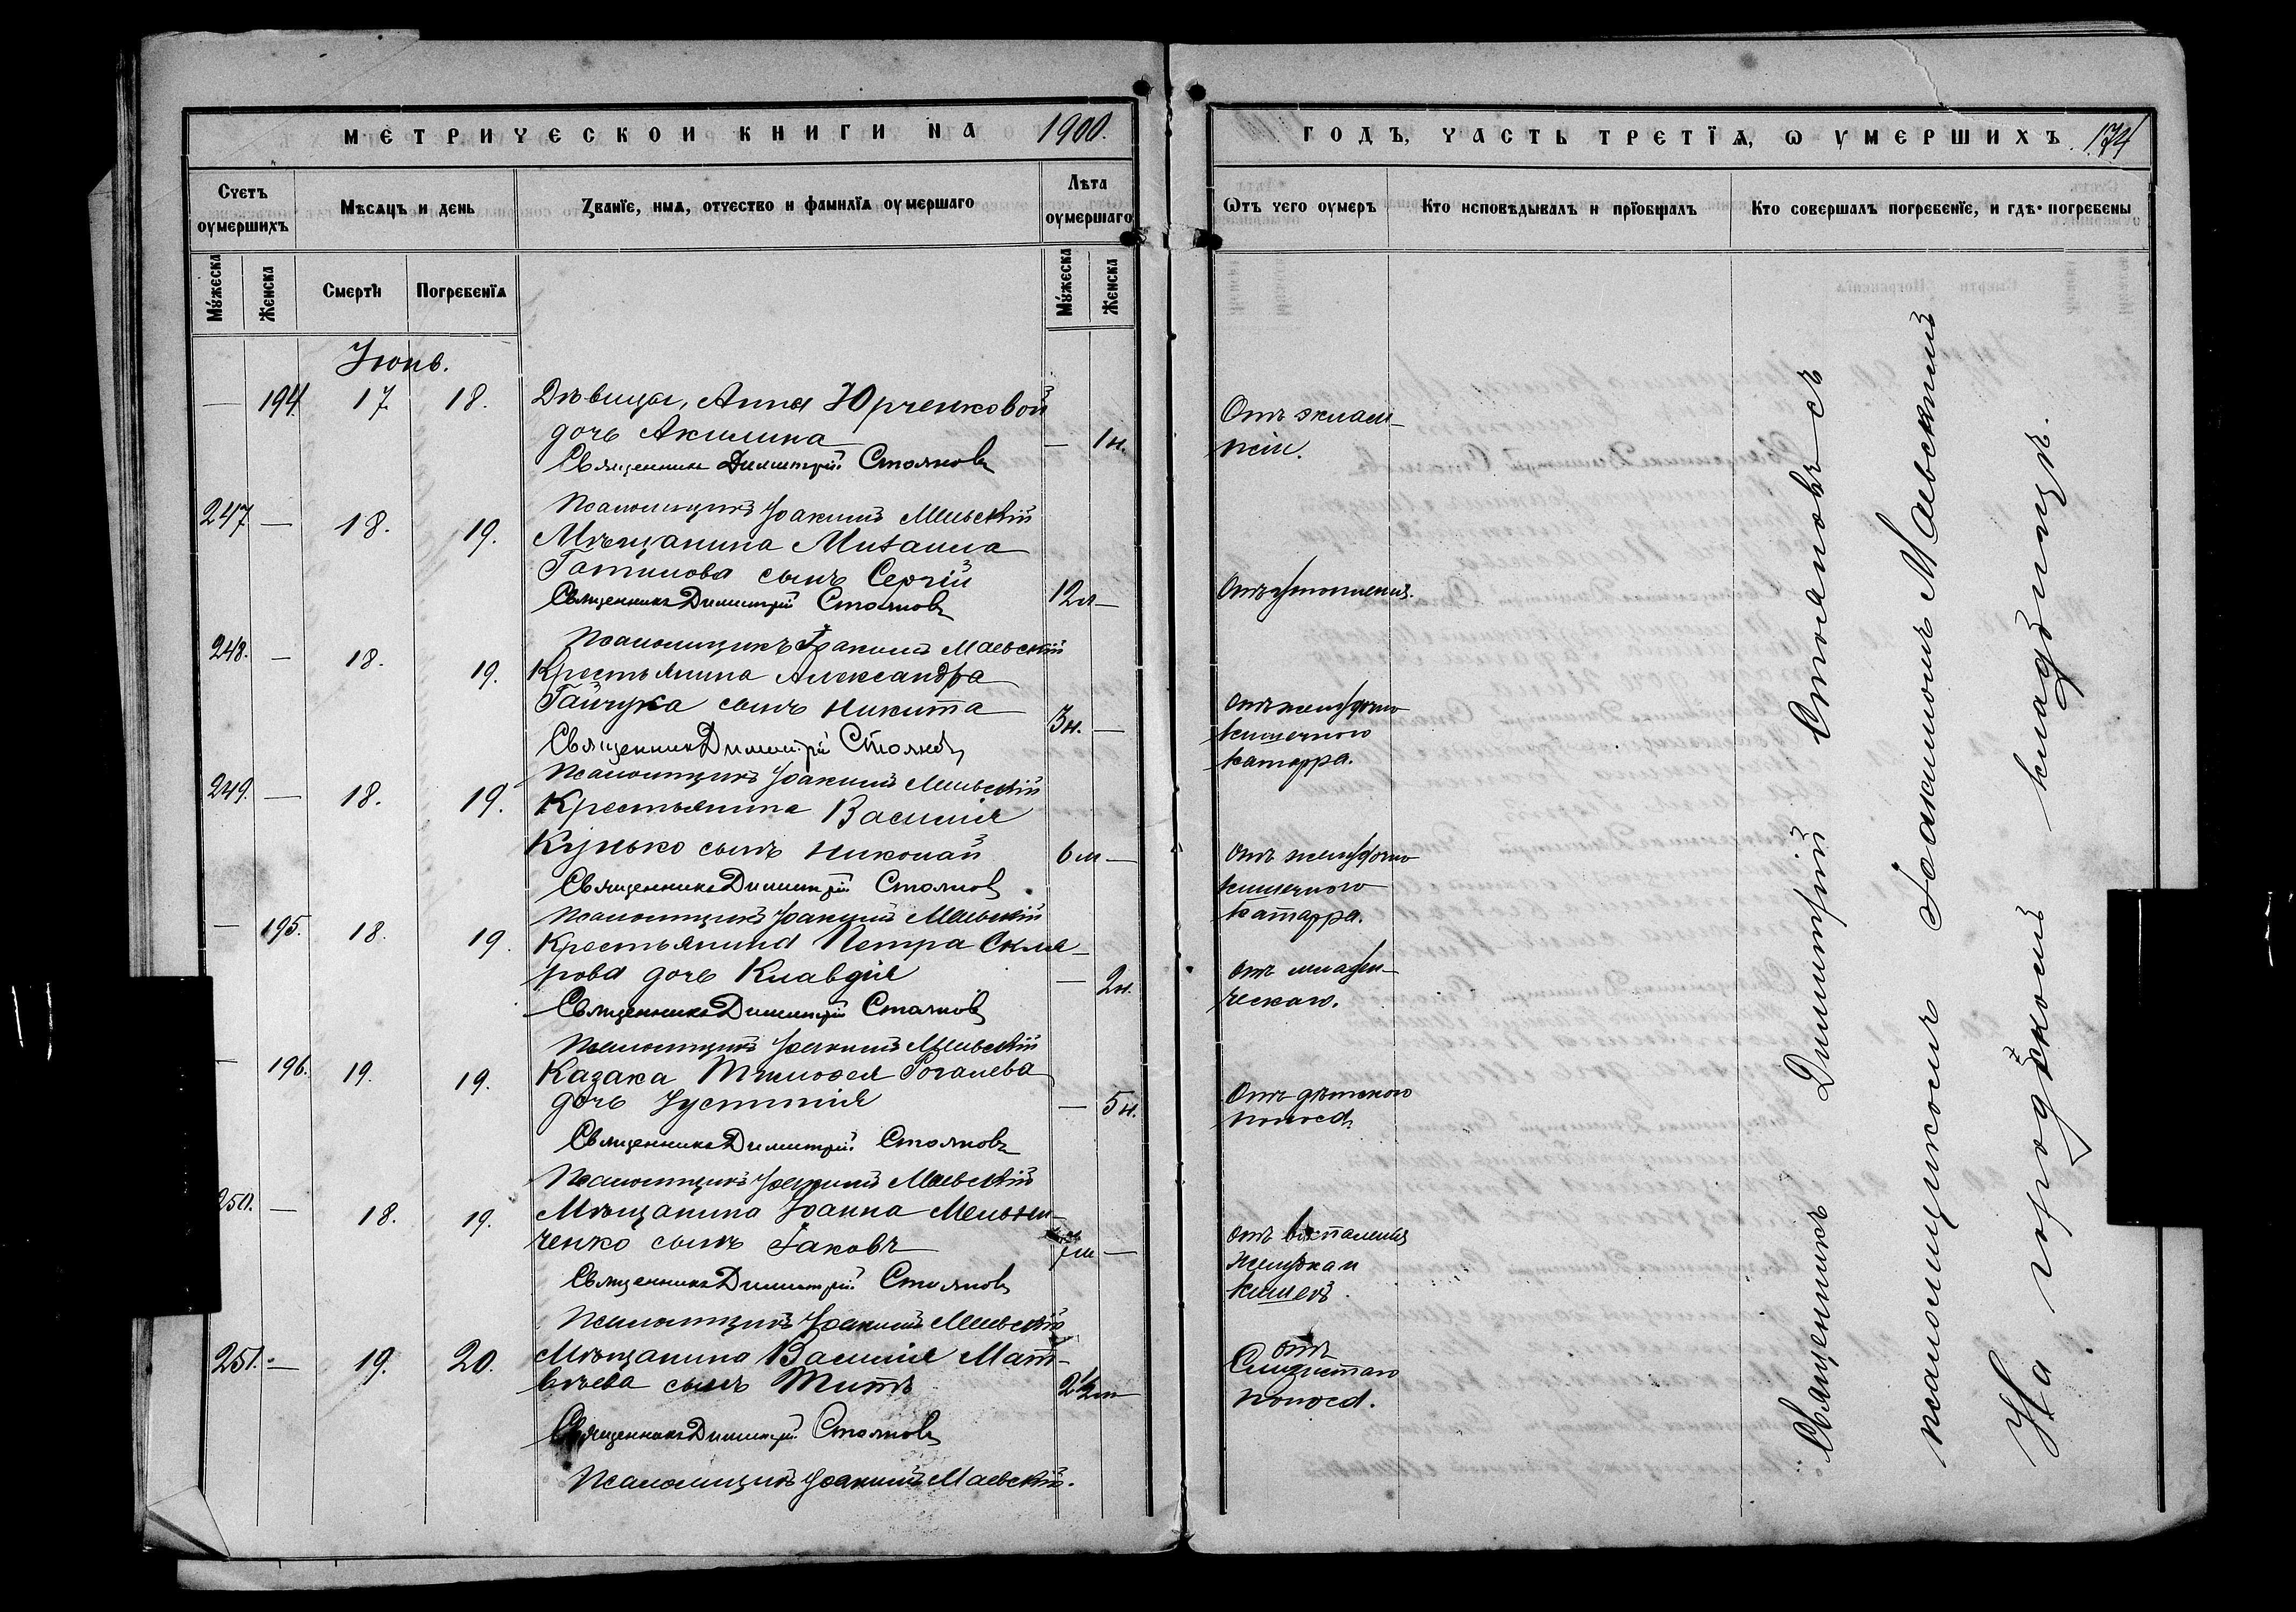 МЕТРИЧЕСКОЙ КНИГИ НА 1900.
Счетъ оумершихъ
Мѣсяцъ и день
Званїе, имя, отчество и фамилїя оумершаго
Лѣта оумершаго
Мꙋжеска
Женска
Смерти
Погребенїя
Мꙋжеска
Женска
Іюнь.
— 194 17. 18. Дѣвицы, Анны Юрченковой
дочь Акилина — 1н.
Священникъ Димитрій Стояновъ
Псаломщикъ Іоакимъ Маевскій
247 — 18. 19. Мѣщанина Михаила
Готинова сынъ Сергій
Священникъ Димитрій Стояновъ 12л —
Псаломщикъ Іоакимъ Маевскій
248. — 18. 19. Крестьянина Александра
Гайчука сынъ Никита 3н. —
Священникъ Димитрій Стояновъ
Псаломщикъ Іоакимъ Маевскій
249. — 18. 19. Крестьянина Василія
Кунько сынъ Николай 6м —
Священникъ Димитрій Стояновъ
Псаломщикъ Іоакимъ Маевскій
— 195. 18. 19. Крестьянина Петра Скля-
рова дочь Клавдія — 2н.
Священникъ Димитрій Стояновъ
Псаломщикъ Іоакимъ Маевскій
— 196. 19. 19. Казака Тимофея Рогалева
дочь Іустинія — 5н.
Священникъ Димитрій Стояновъ
Псаломщикъ Іоакимъ Маевскій
250. — 18. 19. Мѣщанина Іоанна Мельни-
ченко сынъ Іаковъ 7м —
Священникъ Димитрій Стояновъ
Псаломщикъ Іоакимъ Маевскій
251. — 19. 20. Мѣщанина Василія Мат-
вѣева сынъ Титъ 2½м
Священникъ Димитрій Стояновъ
Псаломщикъ Іоакимъ Маевскій.
ГОДЪ, ЧАСТЬ ТРЕТЇЯ, Ѡ УМЕРШИХЪ. 174
Ѿтъ чего оумеръ
Кто исповѣдывалъ и прїобщалъ
Кто совершалъ погребенїе, и гдѣ погребены
Отъ эклам-
псіи.
Отъ утопленія.
Отъ желудочно
кишечнаго
катарра.
Отъ желудочно
кишечнаго
катарра.
Отъ младен-
ческаго.
Отъ дѣтскаго
поноса
Отъ воспаленія
желудка и
кишекъ.
отъ
Слизистаго
поноса.
Священникъ Димитрій Стояновъ съ
псаломщикомъ Іоакимомъ Маевскимъ
На городскомъ кладбищѣ.